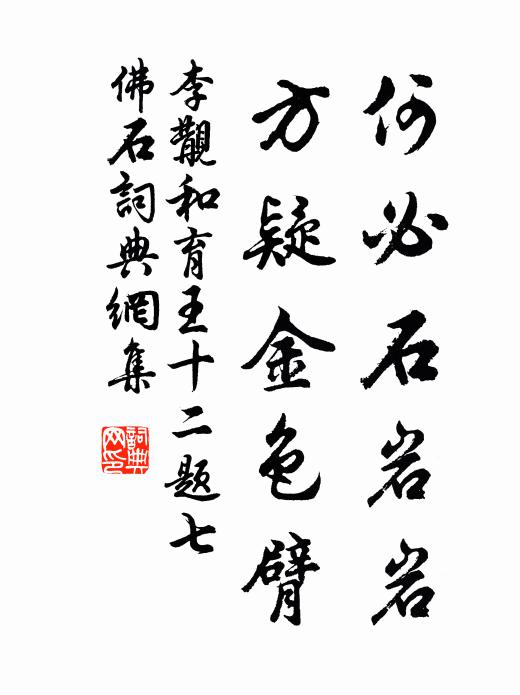 何必石岩岩
方疑金色臂
李觏和育王十二題七
佛石詞典網集
詞典网印